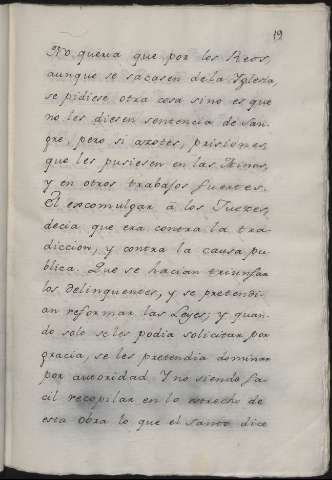 19
No queria que por los Reos,
aunque se sacasen dela Yglesia,
se pidiese otra cosa sino es que
no les diesen sentencia de san-
gre, pero si azotes, prisiones,
que les pusiesen en las Minas,
y en otros trabajos fuertes.
El escomulgar a los Jueces,
decia que era contra la tra-
diccion, y contra la causa pu-
blica. Que se hacian triunfar
los delinquentes, y se pretendi-
an reformar las Leyes; y quan-
do solo se les podia solicitar por
gracia, se les pretendia dominar
por autoridad. Y no siendo fa-
cil recopilar en lo estrecho de
esta obra lo que el Santo dice